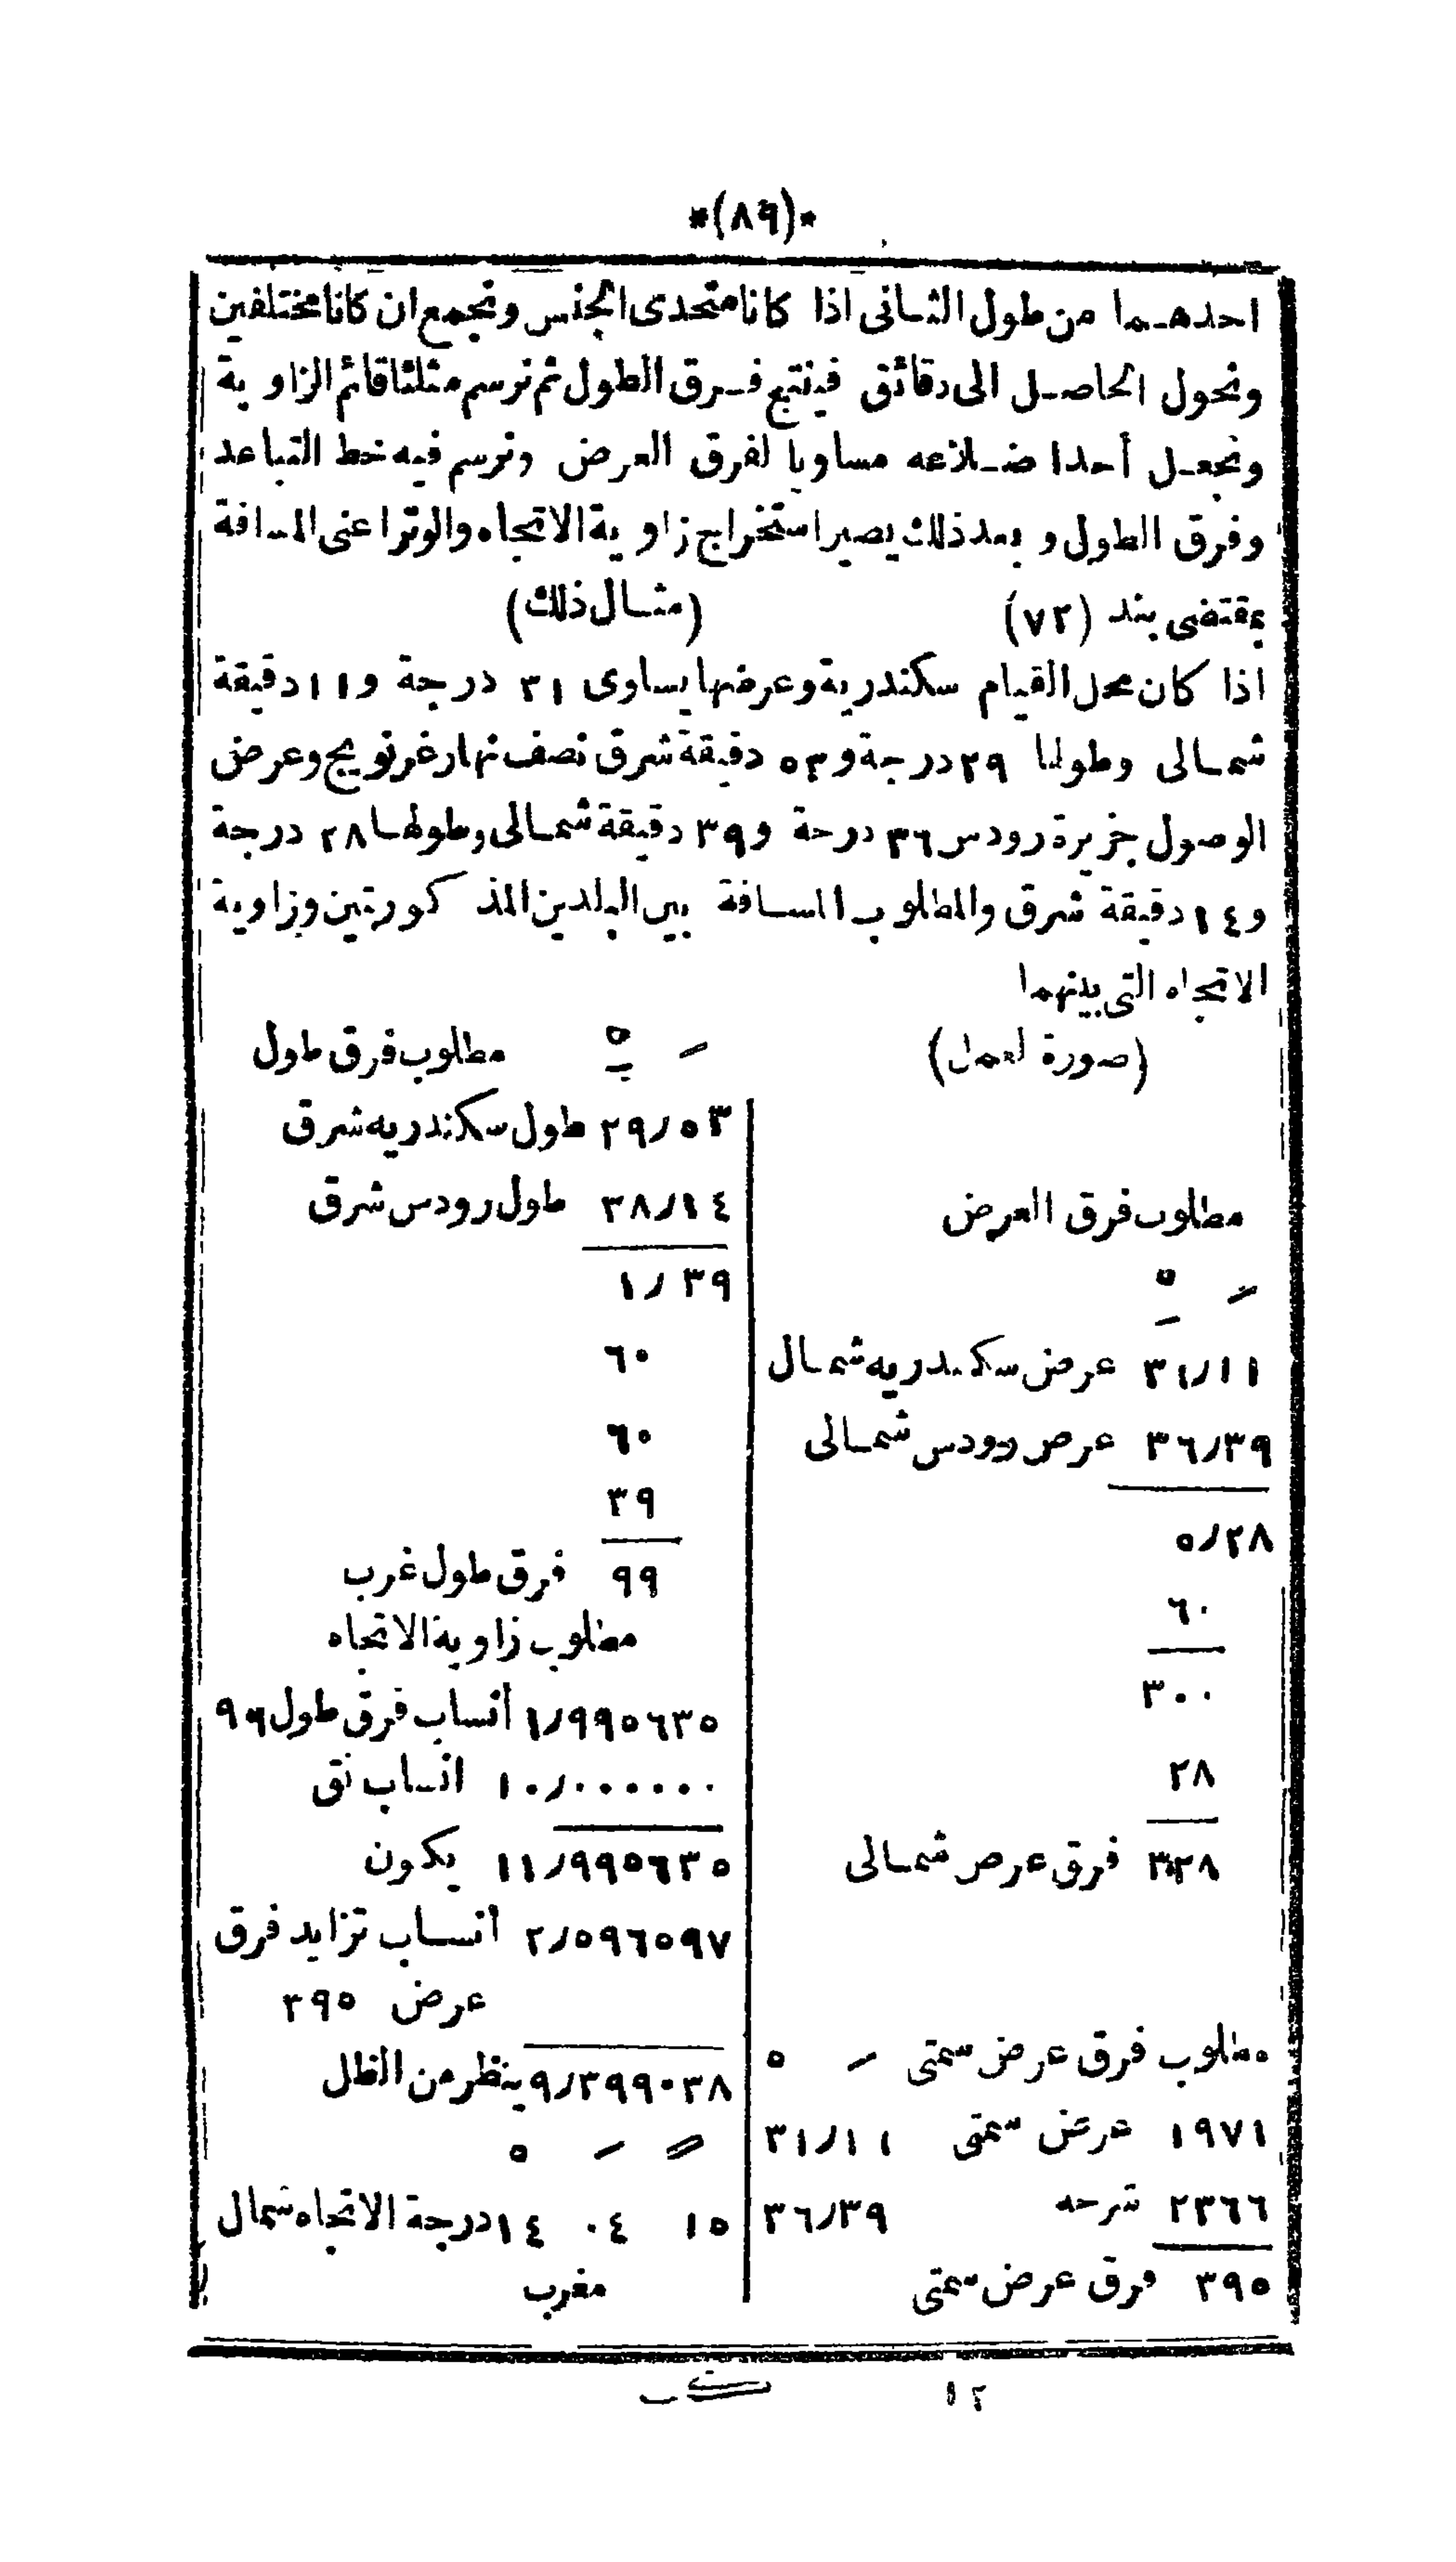 *(٨٩)*
احدهـما من طول الثـانى اذا كانا متحدى الجنس ونجمع ان كانا مختلفين
ونحول الحاصـل الى دقائق فينتج فـرق الطول ثم نرسم مثلثا قائم الزاوية
ونجعـل أحدا ضـلاعه مساويا لفرق العرض ونرسم فيه خط التباعد
وفرق الطول و بعد ذلك يصير استخراج زاوية الاتجاه والوتر اعنى المسافة
بمقتضى بند (٧٢)
(مثـال ذلك)
اذا كان محل القيام سكندرية وعرضها يساوى ٣١ درجة و١١ دقيقة
شمـالى وطولها ٢٩ درجة و٥٣ دقيقة شرق نصف نهار غرنويج وعرض
الوصول جزيرة رودس ٣٦ درجة و٣٩ دقيقة شمـالى وطولهـا ٢٨ درجة
و١٤ دقيقة شرق والمطلوب المسـافة بين البلدين المذكورتين وزاوية
الاتجاه التى بينهما
(صورة العمل)
مطلوب فرق العرض
٣١/١١ عرض سكندريه شمـال
٣٦/٣٩ عرض رودس شمـالى
٥/٢٨
٦٠
٣٠٠
٢٨
٣٢٨ فرق عرض شمـالى
مطلوب فرق عرض سمتى
١٩٧١ عرض سمتى ٣١/١١
٢٣٦٦ شرحه ٣٦/٣٩
٣٩٥ فرق عرض سمتى
مطلوب فرق طول
٢٩/٥٣ طول سكندريه شرق
٣٨/١٤ طول رودس شرق
١/٣٩
٦٠
٦٠
٣٩
٩٩ فرق طول غرب
مطلوب زاوية الاتجاه
١/٩٩٥٦٣٥ أنساب فرق طول ٩٩
١٠/٠٠٠٠٠٠ انساب نق
١١/٩٩٥٦٣٥ يكون
٢/٥٩٦٥٩٧ أنسـاب تزايد فرق
عرض ٣٩٥
٩/٣٩٩٠٣٨ ينظر من الظل
١٥ ٠٤ ١٤ درجة الاتجاه شمال
مغرب
١٢